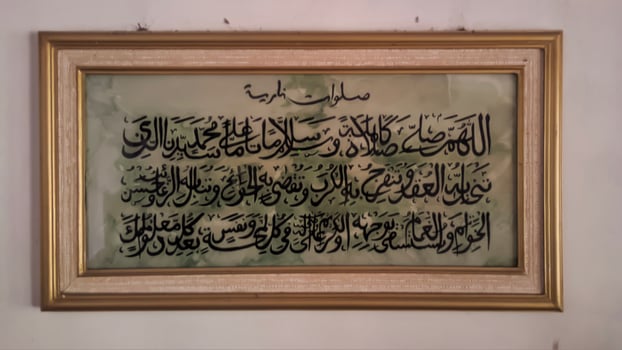 صلوات نارية
اللهم صل صلاة كاملة وسلم سلاما تاما على سيدنا محمد الذي
تنحل به العقد وتنفرج به الكرب وتقضى به الحوائج وتنال به الرغائب وحسن
الخواتم ويستسقى الغمام بوجهه الكريم وعلى آله في كل لمحة ونفس بعدد كل معلوم لك